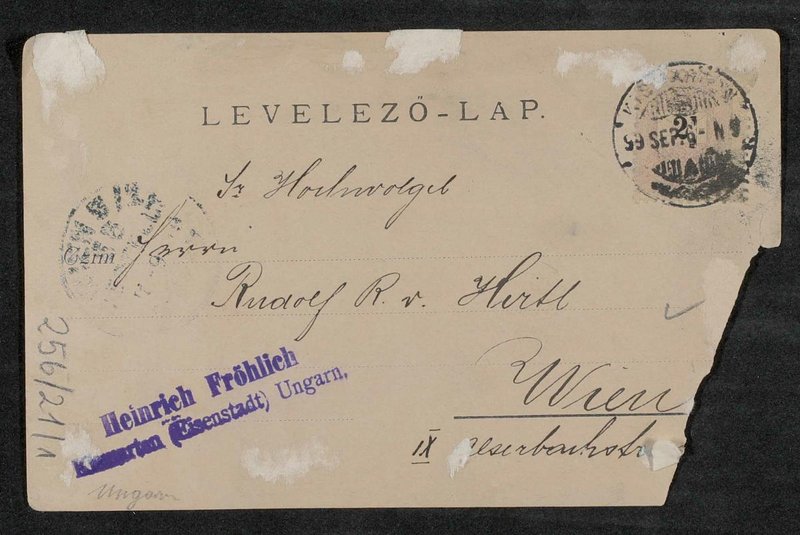 LEVELEZŐ-LAP.
99 SEP. 6 - N
Sr Hochwolgeb
Czim
Herrn
Rudolf R. v. Hirtl
Wien
IX
256/21/1
Heinrich Fröhlich
(Eisenstadt) Ungarn.
Ungarn